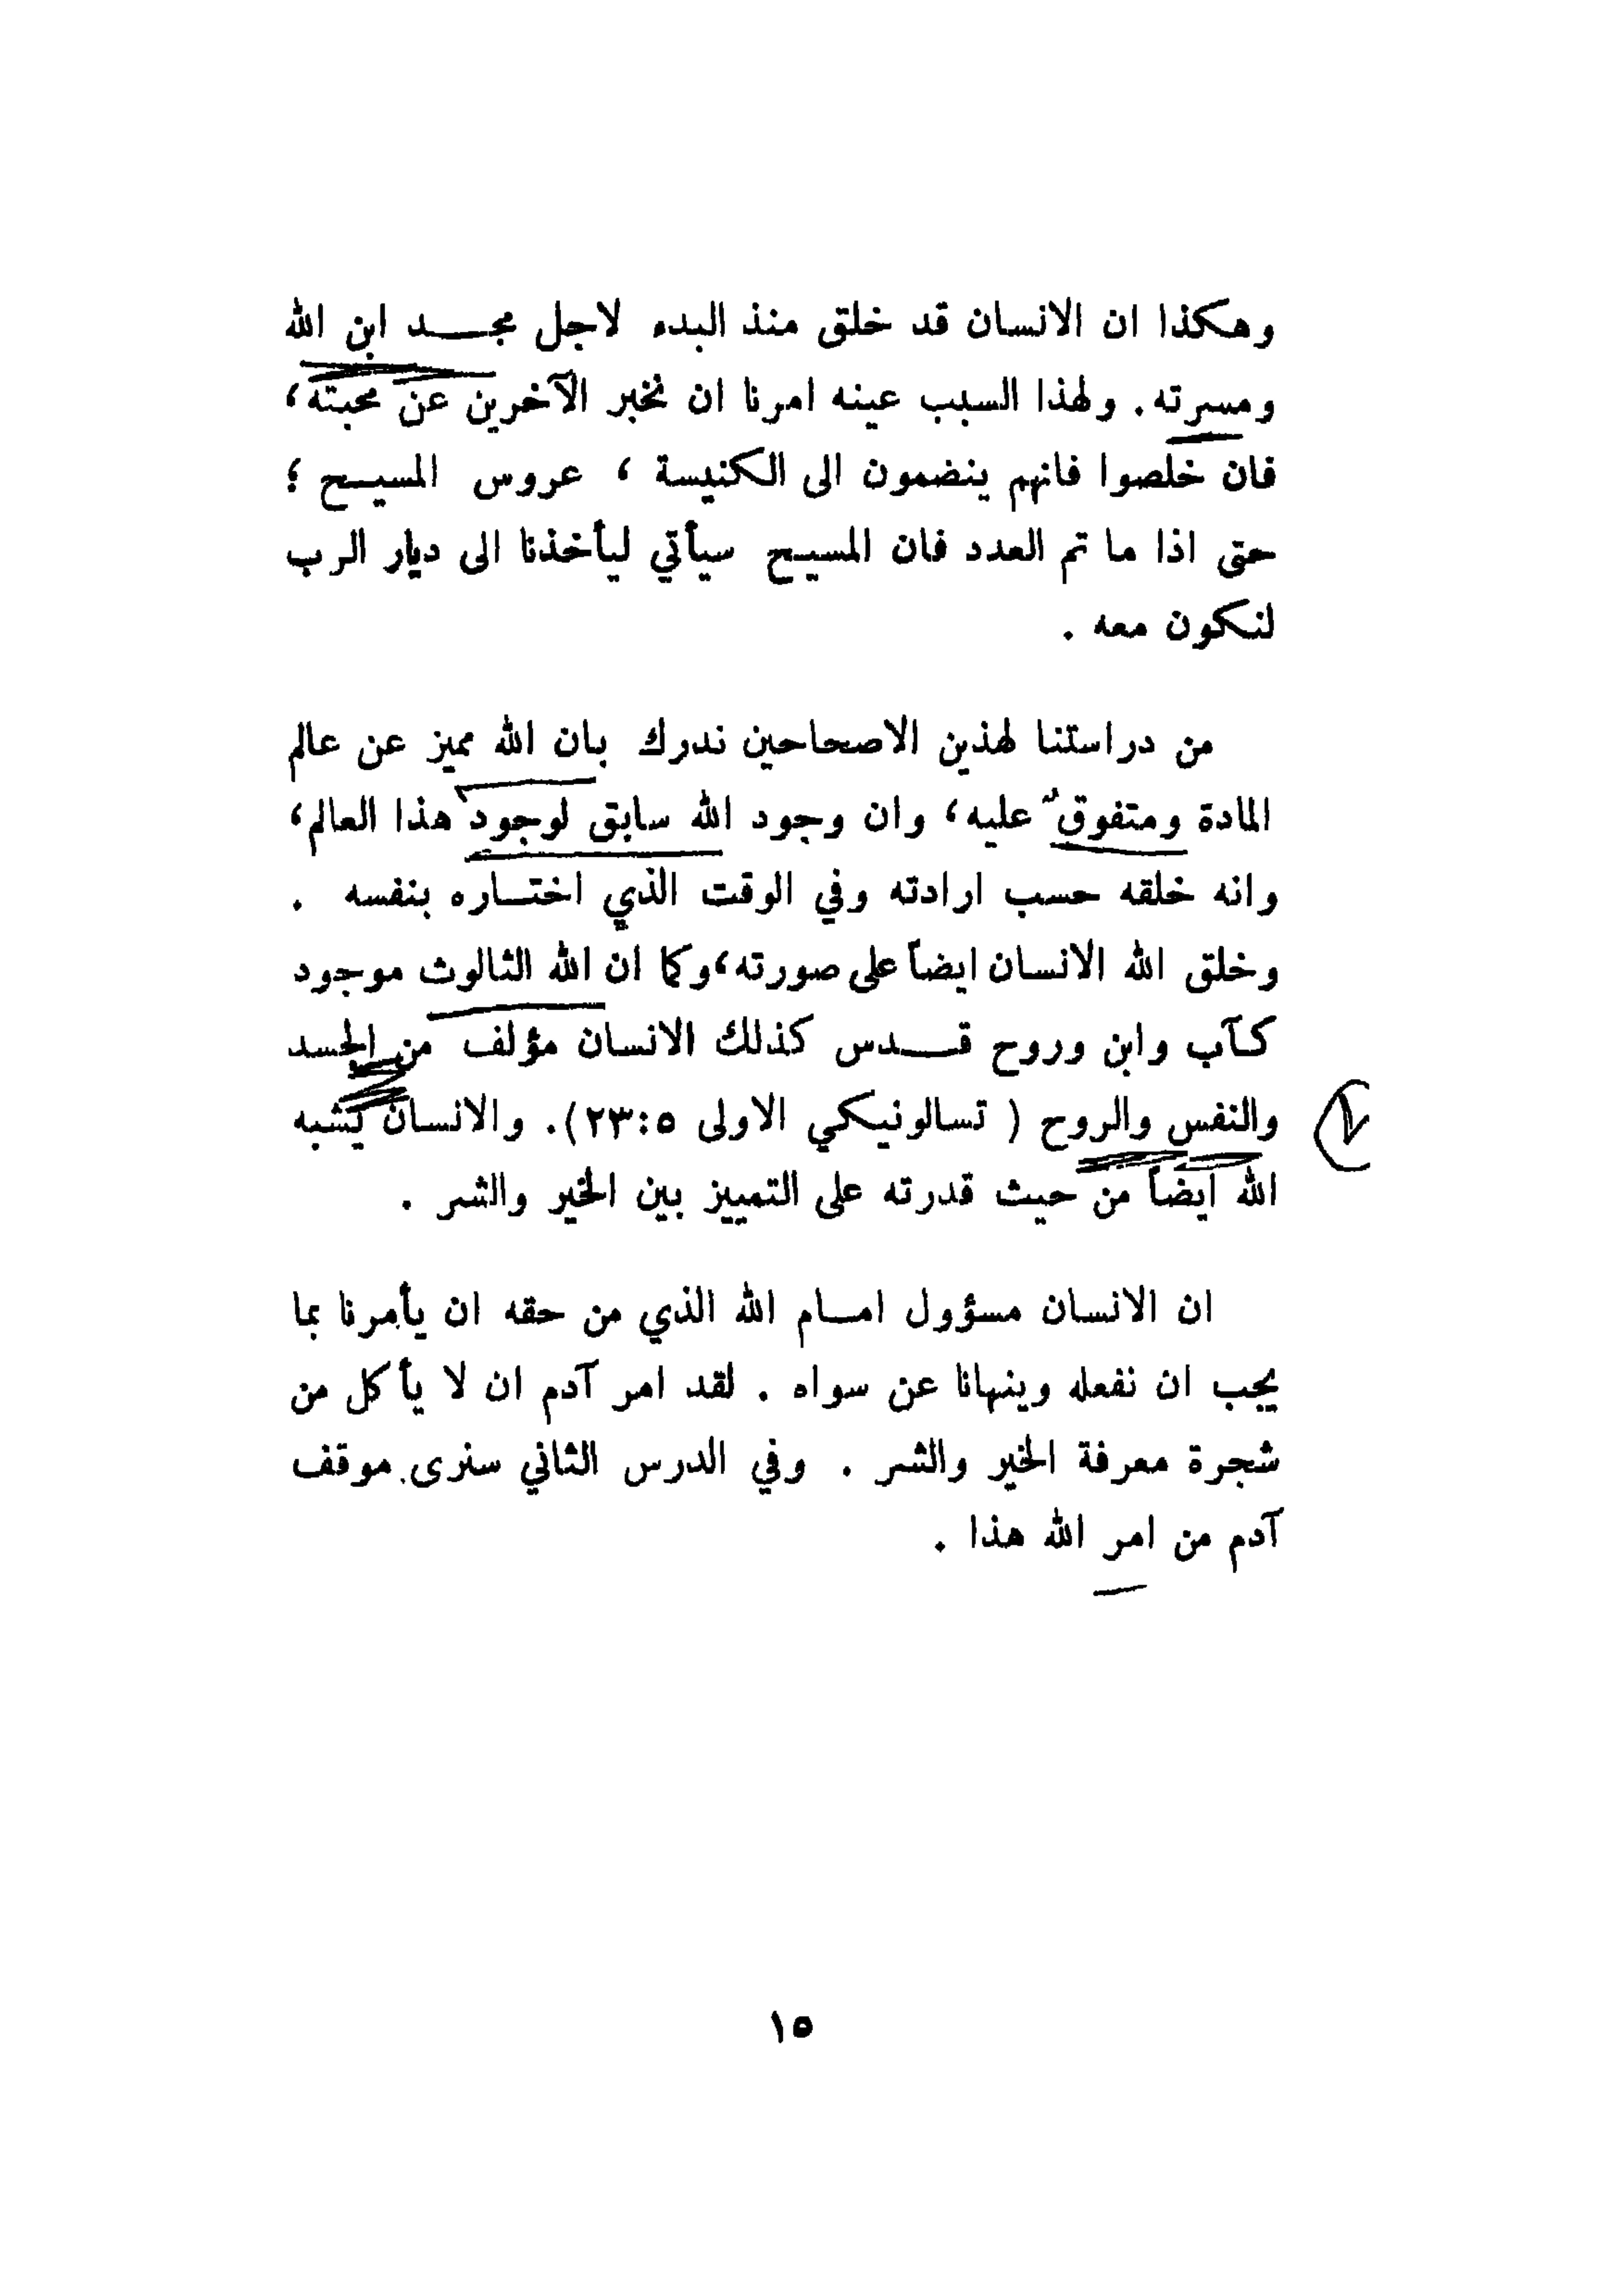 وهكذا ان الانسان قد خلق منذ البدء لاجل مجـــد ابن الله
ومسرته. ولهذا السبب عينه امرنا ان نخبر الآخرين عن محبته،
فان خلصوا فانهم ينضمون الى الكنيسة ، عروس المسيـح ؛
حتى اذا ما تم العدد فان المسيـح سيأتي ليأخذنا الى ديار الرب
لنكون معه .
من دراستنا لهذين الاصحاحين ندرك بان الله مميز عن عالم
المادة ومتفوق عليه، وان وجود الله سابق لوجود هذا العالم،
وانه خلقه حسب ارادته وفي الوقت الذي اختـاره بنفسه .
وخلق الله الانسان ايضاً على صورته،وكما ان الله الثالوث موجود
كـآب وابن وروح قـــدس كذلك الانسان مؤلف من الجسد
والنفس والروح ( تسالونيكي الاولى ٢٣:٥). والانسان يشبه
الله ايضاً من حيث قدرته على التمييز بين الخير والشر .
ان الانسان مسؤول امــام الله الذي من حقه ان يأمرنا بما
يجب ان نفعله وينهانا عن سواه . لقد امر آدم ان لا يأكل من
شجرة معرفة الخير والشر . وفي الدرس الثاني سنرى موقف
آدم من امر الله هذا .
١٥